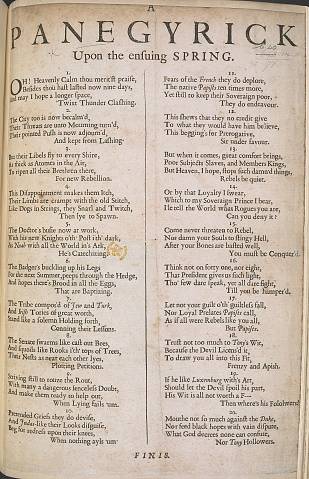 A
PANEGYRICK
Upon the ensuing SPRING.
1.
OH! Heavenly Calm thou meritst praise,
Besides thou hast lasted now nine days,
And may I hope a longer space,
'Twixt Thunder Clashing.
2.
The City too is now becalm'd,
Their Throats are unto Mourning turn'd,
Their pointed Push is now adjourn'd,
And kept from Lashing.
3.
But their Libels fly to every Shire,
As thick as Atomes in the Air,
To ripen all their Brethren there,
For new Rebellion.
4.
This Disappointment makes them Itch,
Their Limbs are crampt with the old Stitch,
Like Dogs in Strings, they Snarl and Twitch,
Then lye to Spawn.
5.
The Doctor's busie now at work,
With his new Knights o'th' Post i'th' dark,
his Noah with all the World in's Ark,
He's Catechizing.
6.
The Badger's buckling up his Legs
For the next Summer, peeps through the Hedge,
And hopes there's Brood in all the Eggs,
That are Baptizing.
7.
The Tribe compos'd of Jew and Turk,
And Irish Tories of great worth,
Stand like a solemn Holding forth,
Conning their Lessons.
8.
The Senate swarms like cast out Bees,
And squads like Rooks i'th' tops of Trees,
Their Nests as near each other lyes,
Plotting Petitions.
9.
Striving still to rouze the Rout,
With many a dangerous senceless Doubt,
And make them ready to help out,
When Lying fails 'um.
10.
Pretended Griefs they do devise,
And Judas-like their Looks disguise,
Beg for redress upon their knees,
When nothing ayls 'um
11.
Fears of the French they do deplore,
The native Papists ten times more,
Yet still to keep their Soveraign poor,
They do endeavour.
12.
This shews that they no credit give
To what they would have him believe,
This begging's for Prerogative,
Sir under favour.
13.
But when it comes, great comfort brings,
Poor Subjects Slaves, and Members Kings,
But Heaven, I hope, stops such damned things,
Rebels be quiet.
14.
Or by that Loyalty I swear,
Which to my Soveraign Prince I bear,
Ile tell the World what Rogues you are,
Can you deny it?
15.
Come never threaten to Rebel,
Nor damn your Souls to slingy Hell,
After your Bones are basted well,
You must be Conquer'd.
16.
Think not on forty one, nor eight,
That President gives us such light,
Tho' few dare speak, yet all dare fight,
Till you be humper'd.
17.
Let not your guilt o'th' guiltless fall,
Nor Loyal Prelates Papists call,
As if all were Rebels like you all,
But Papists.
18.
Trust not too much to Tony's Wit,
Because the Devil Licens'd it,
To draw you all into this Fit,
Frenzy and Apish.
19.
If he like Luxemburg with's Art,
Should let the Devil spoil his part,
His Wit is all not worth a F---
Then where's his
20.
Mouthe not so much against the Duke,
Nor feed black hopes with vain dispute,
What God decrees none can confute,
Nor Tony Hollowers.
FINIS.